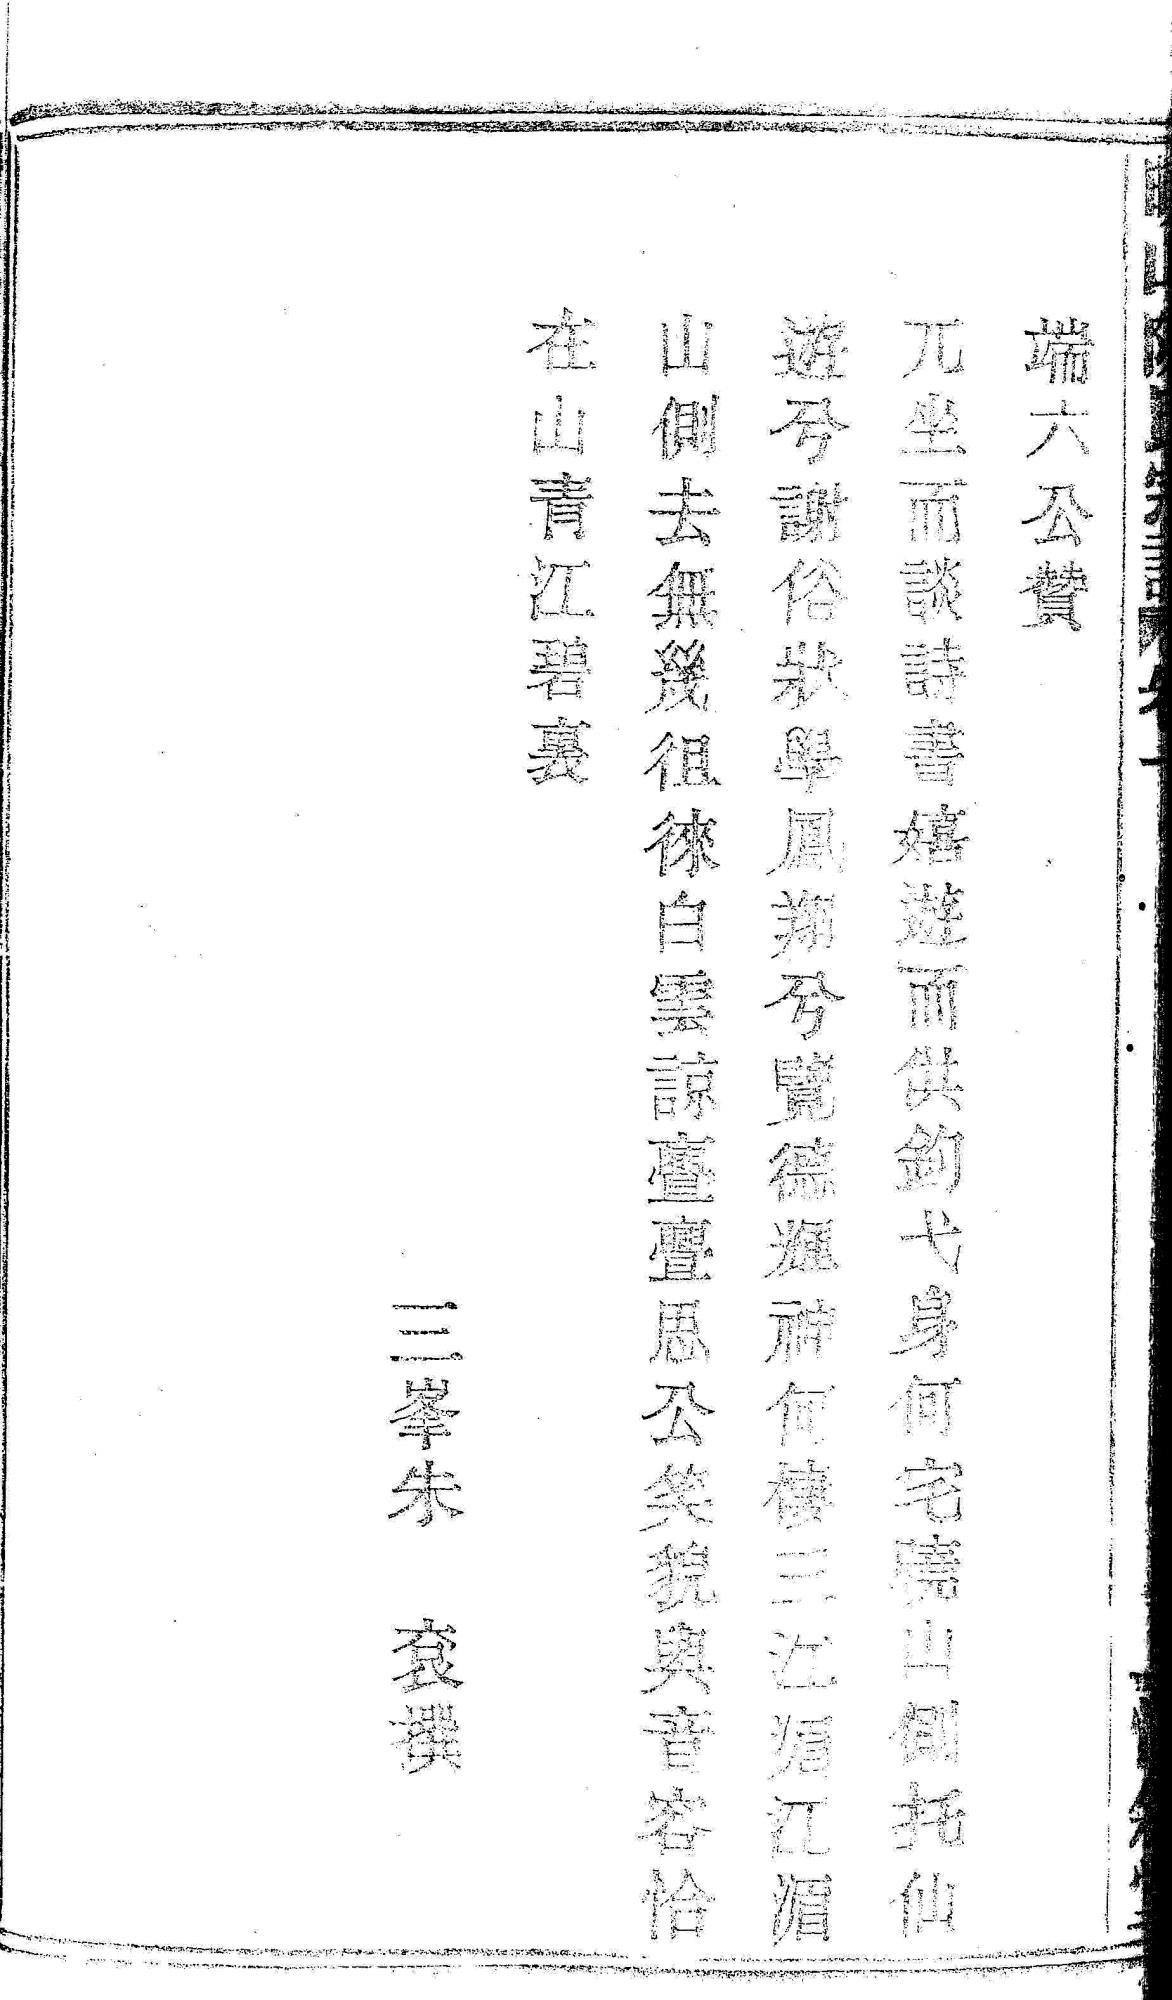 端六公贊
兀坐而談詩書嬉遊而供釣弋身何宅曉山側托仙
遊兮謝俗狀學鳳翔兮覽德輝神何棲三江滬江湄
山側去無幾徂徠白雲諒亹亹思公笑貌與音容恰
在山青江碧裏
三峯朱 袞撰